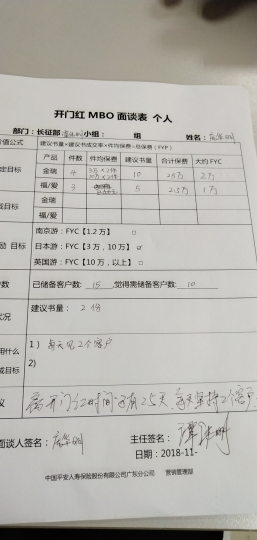 开门红 MBO 面谈表 个人
部门：长征部 小组： 组 姓名：
价值公式 建议书量×建议书成交率×件均保费=总保费（FYP）
定目标 产品 件数 件均保费 建议书量 合计保费 大约FYC
金瑞 4 10 25万 2万
福/爱 3 5 2.5万 1万
目标 金瑞
福/爱
励 目标 南京游：FYC【1.2万】 □
日本游：FYC【3万，10万】 ☑
英国游：FYC【10万，以上】 □
户数 已储备客户数：15 ,觉得需储备客户数：10
状况 建议书量： 2份
用什么 1）每天见2个客户
成目标 2)
议 离开门红时间还有25天，每天坚持2个客户
面谈人签名： 主任签名：
日期：2018-11-
中国平安人寿保险股份有限公司广东分公司 营销管理部